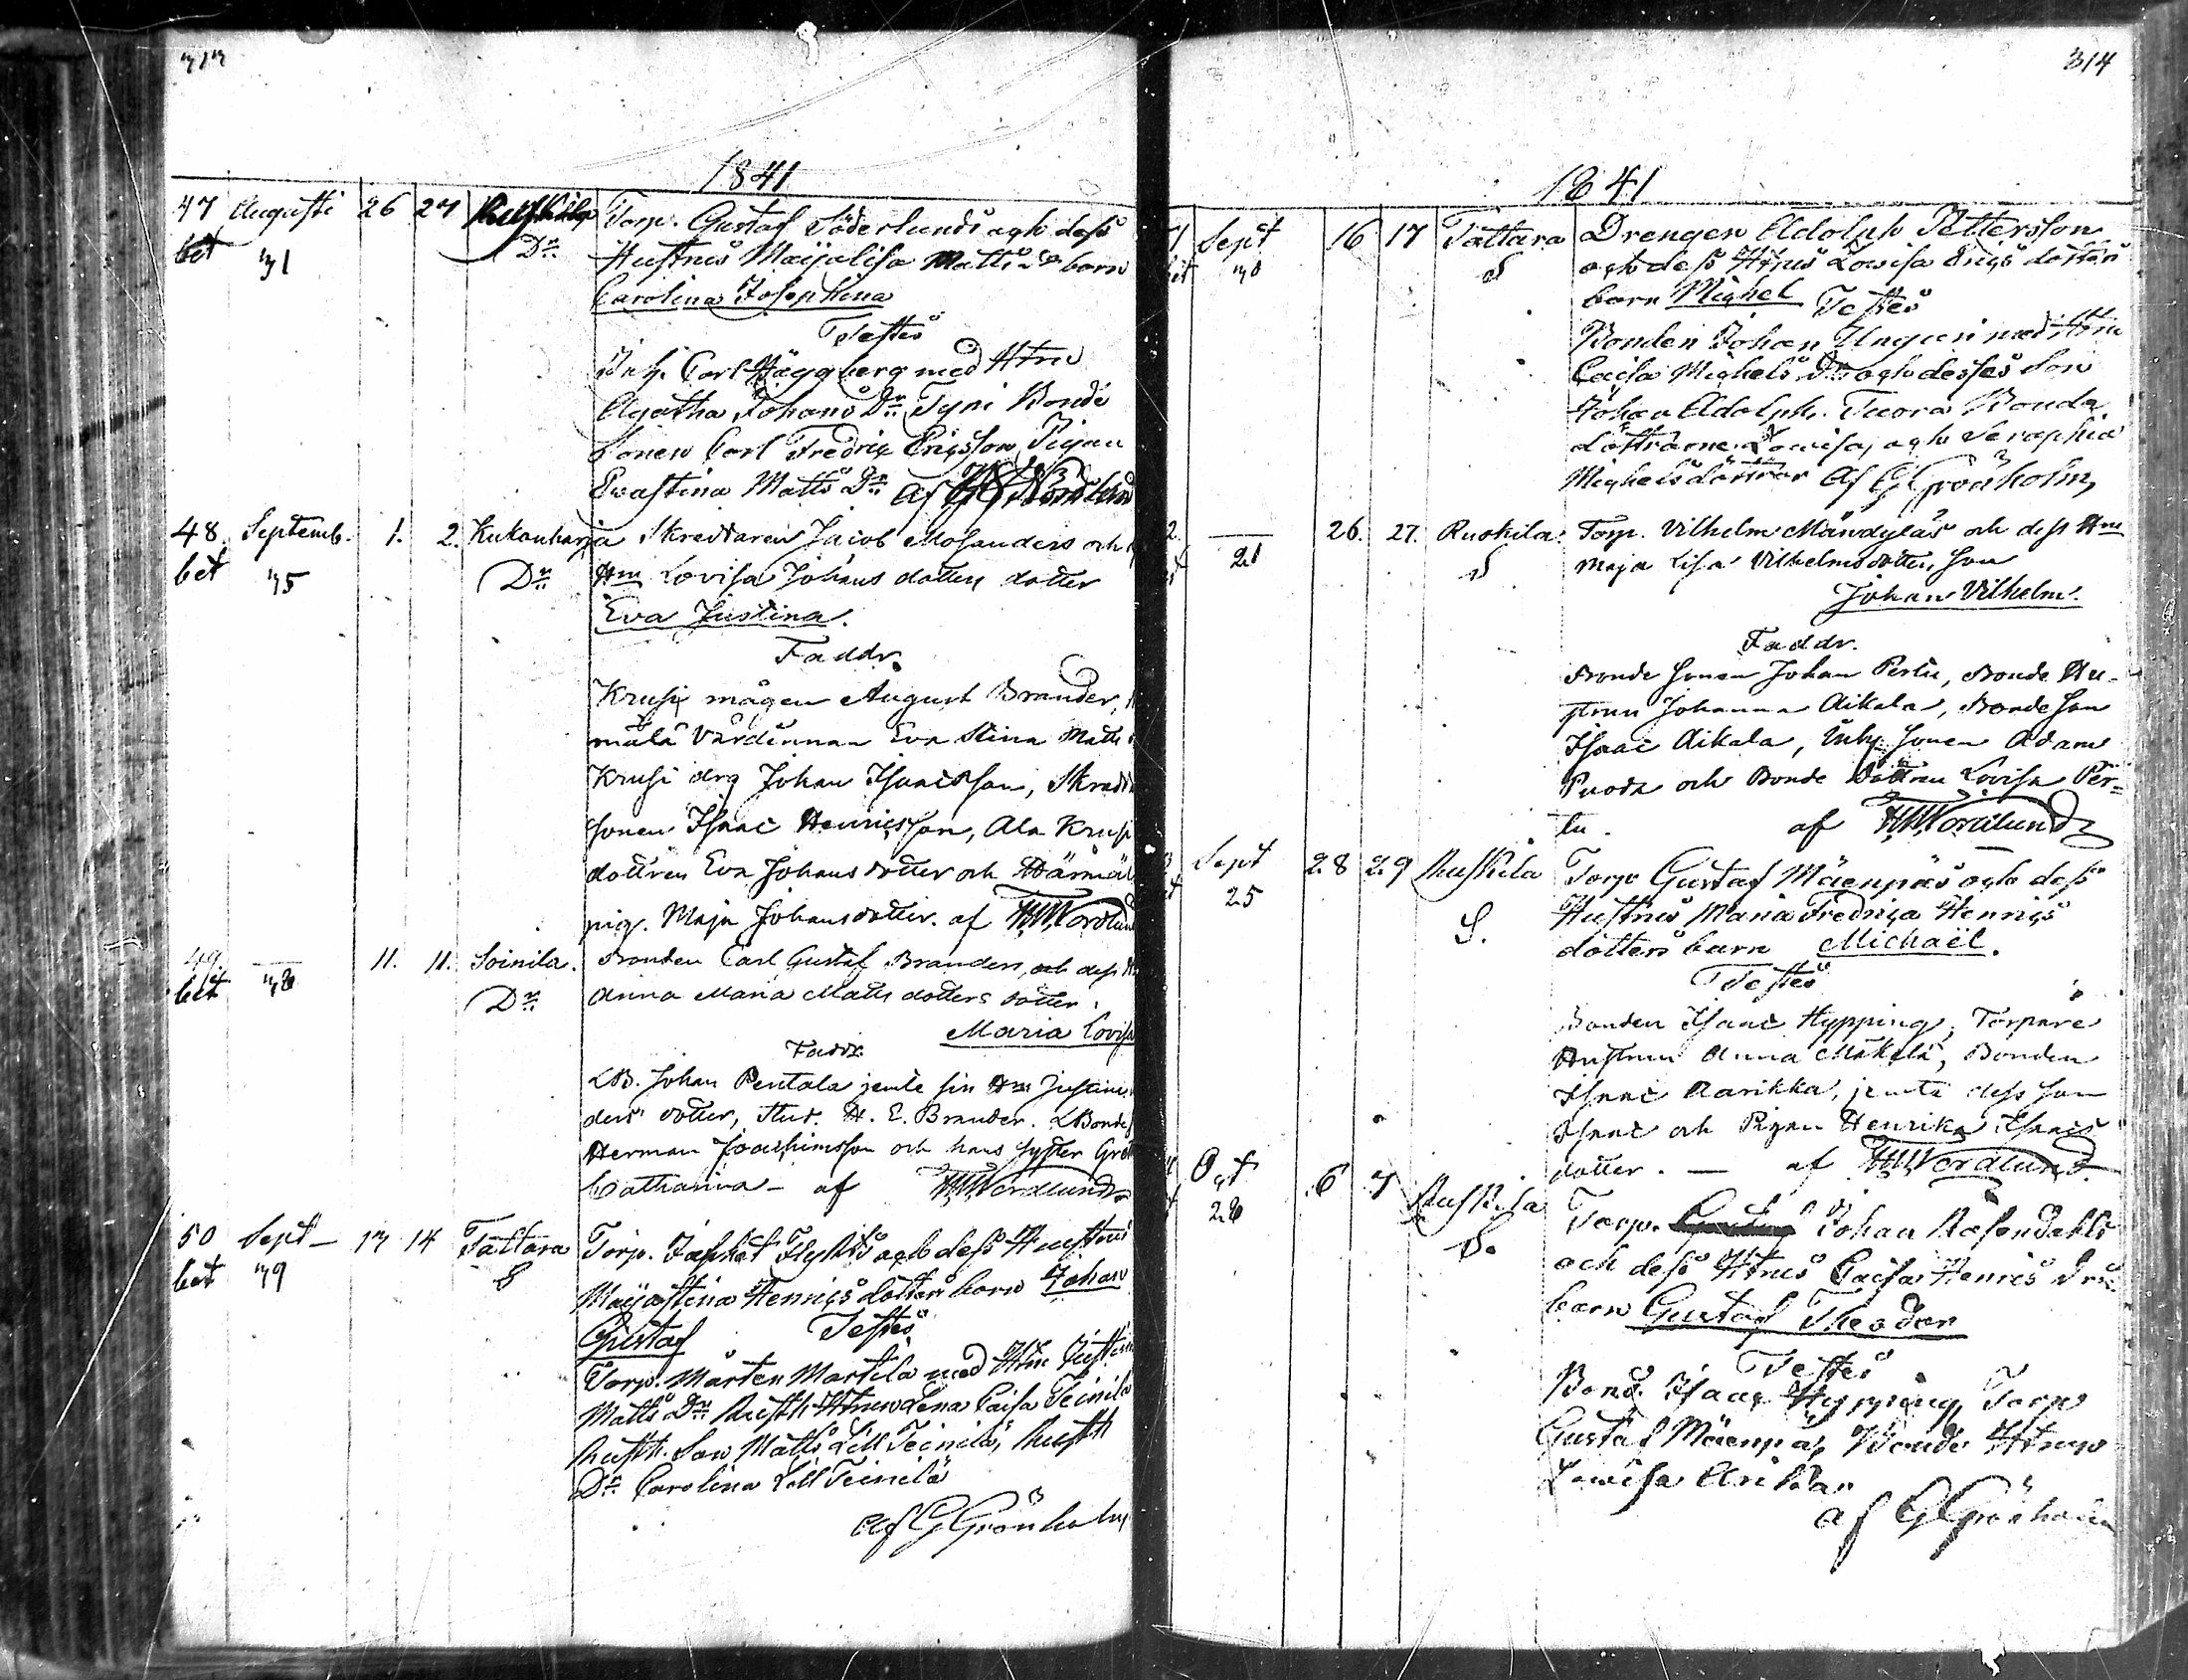 313
1841
47 Augusti 26 27 Ruskila Torp. Gustaf Söderlunds och dess
bet 31 Dr. Hustrus Maijalisa Matts Dr barn
Carolina Josephina
Testes
Inh. Carl Häggberg med Hru
Agatha Johans Dr. Tyni Bonde
Sonen Carl Fredric Ericsson, Pigan
Evastina Matts Dr. af
48 Septemb. 1. 2. Kukonharja Skreddaren Jacob Mosanders och
bet 35 Dr. Hru Lovisa Johans dotters dotter
Eva Justina.
Faddr.
Krusi mågen August Brander,
mälä Värdinnan Eva Stina Matts
Krusi drg Johan Isaacsson, Skradd
sonen Isaac Henricsson, Ala Krusi
dottren Eva Johansdotter och Härmäl
pig. Maja Johansdotter. af HWNordlund
49 — 11. 11. Soinila. Bonden Carl Gustaf Branders, och dess H
bet 38 Dr. Anna Maria Matts dotters dotter
Maria Lovisa
Faddr.
LB. Johan Pentala jemte sin Hru Justina
ders dotter, Stud. H. E. Brander. LBonde
Herman Joachimsson och hans syster Gret
Catharina — af HWNordlund
50 Sept — 13 14 Tattara Torp. Japhet Flykts och dess Hustrus
bet 39 S Maijastina Henrics dotters barn Johan
Gustaf Testes
Torp. Mårten Martila med Hru Justina
Matts Dr. Rusth Hrun Lena Caisa Teinilä
Rusth. Son Matts Lill Teinilä, Rusth
Dr. Carolina Lill Teinilä
af G Grönholm
314
1841
Sept 16 17 Tattara Drengen Adolph Pettersson
S och dess Hrus Lowisa Erics dotters
barn Michel Testes
Bonden Johan Unguri med Hru
Caisa Michels Dr och desses Son
Johan Adolph. Tuora Bonde
döttrarne Lowisa, och Seraphia
Michelsdöttrar af G Grönholm,
— 26. 27. Ruskila Torp. Vilhelm Mändyläs och dess Hru
21 S Maja Lisa Vilhelmsdotters, son
Johan Vilhelm.
Faddr.
Bonde sonen Johan Pertu, Bonde Hu-
strun Johanna Aikala, Bondeson
Isaac Aikala, Inh. sonen Adam
Puoda och Bonde Dottren Lovisa Per=
tu. af HWNordlund
Sept 28 29 Ruskila Torp Gustaf Mäenpäs och dess
25 S. Hustrus Maria Fredrica Henrics
dotters barn Michaël.
Testes
Bonden Isaac Hypping, Torpare
Hustrun Anna Mäkelä, Bonden
Isaac Aarikka, jemte dess son
Isaac och Pigan Henrika Isaacs
dotter. — af HWNordlund
Oct 6 7 Ruskila Torp. Johan Rosendahls
26 S. och dess Hrus Caisa Henrics Drs
barn Gustaf Theodor
Testes
Bond. Isaac Hypping, Torp
Gustaf Mäenpä, Bonde Hrun
Lowisa Arikka
af G Grönholm